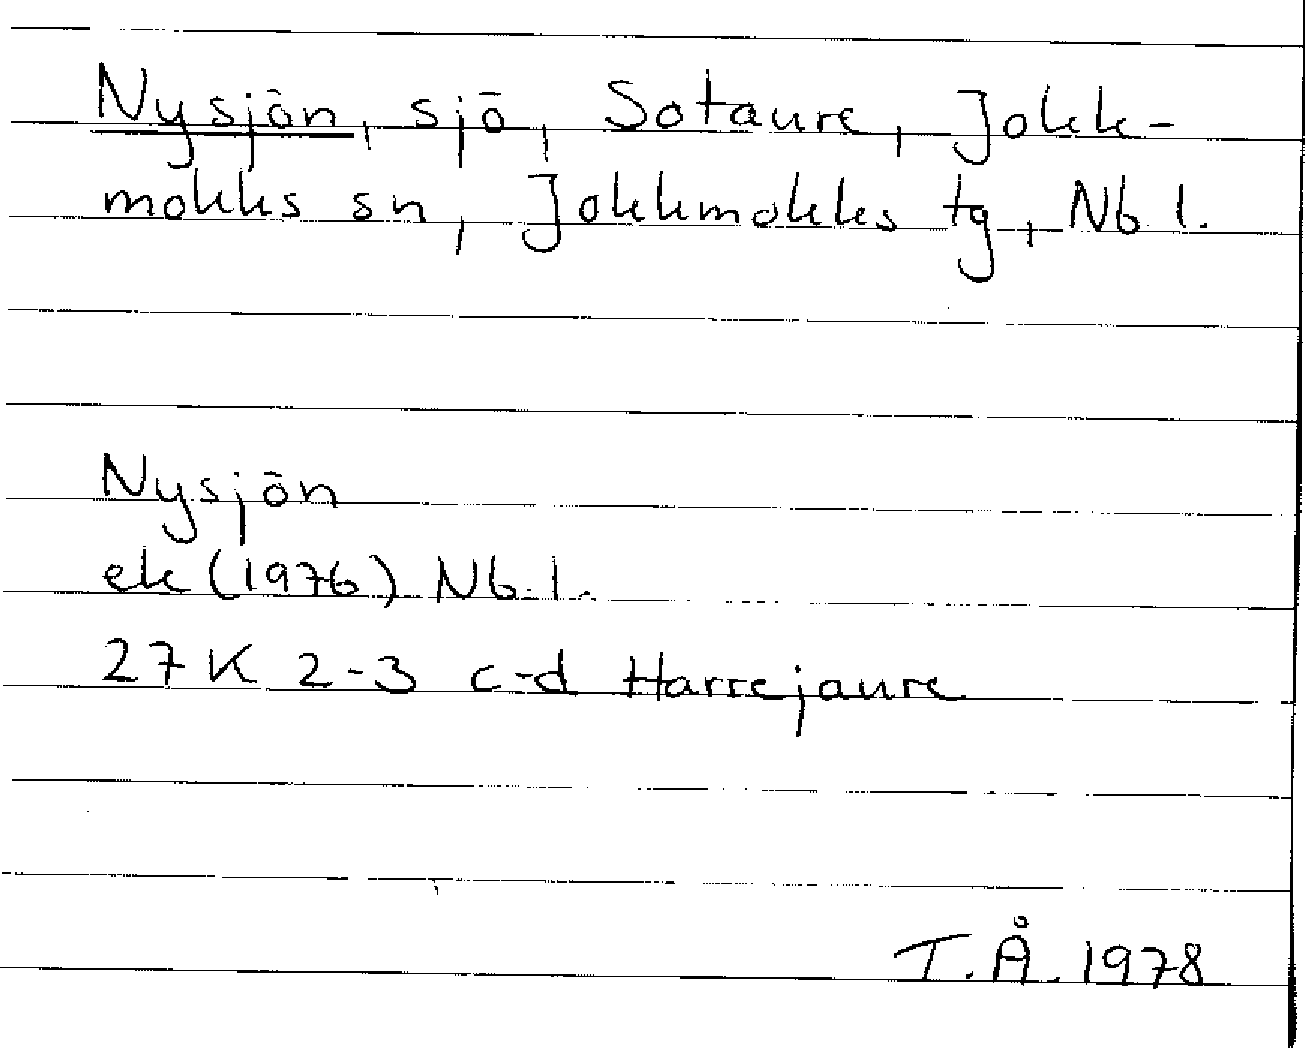 Nysjön, sjö, Sotaure, Jokk-
mokks sn, Jokkmokks tg, Nb l.
Nysjön
ek (1976) Nb. l.
27 K 2-3 c-d Harrejaure
T.Å. 1978